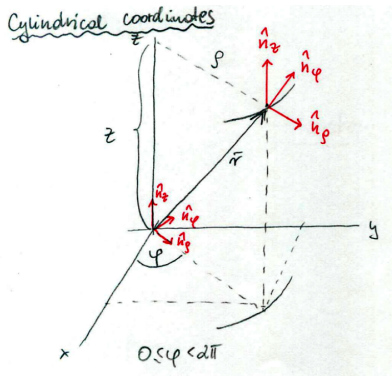 Cylindrical coordinates
z
ρ
n̂z
n̂φ
n̂ρ
z
r̄
n̂z
n̂φ
n̂ρ
φ
y
x
0 ≤ φ < 2π